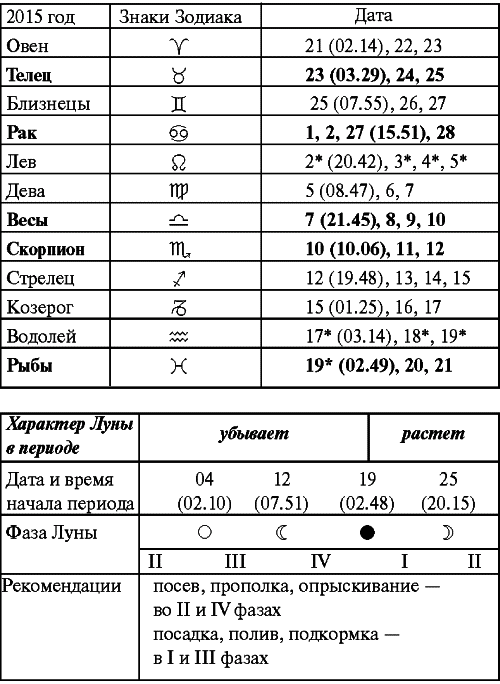 2015 год Знаки Зодиака Дата
Овен ♈ 21 (02.14), 22, 23
Телец ♉ 23 (03.29), 24, 25
Близнецы ♊ 25 (07.55), 26, 27
Рак ♋ 1, 2, 27 (15.51), 28
Лев ♌ 2* (20.42), 3*, 4*, 5*
Дева ♍ 5 (08.47), 6, 7
Весы ♎ 7 (21.45), 8, 9, 10
Скорпион ♏ 10 (10.06), 11, 12
Стрелец ♐ 12 (19.48), 13, 14, 15
Козерог ♑ 15 (01.25), 16, 17
Водолей ♒ 17* (03.14), 18*, 19*
Рыбы ♓ 19* (02.49), 20, 21
Характер Луны убывает растет
в периоде
Дата и время 04 12 19 25
начала периода (02.10) (07.51) (02.48) (20.15)
Фаза Луны ○ ☾ ● ☽
II III IV I II
Рекомендации посев, прополка, опрыскивание —
во II и IV фазах
посадка, полив, подкормка —
в I и III фазах